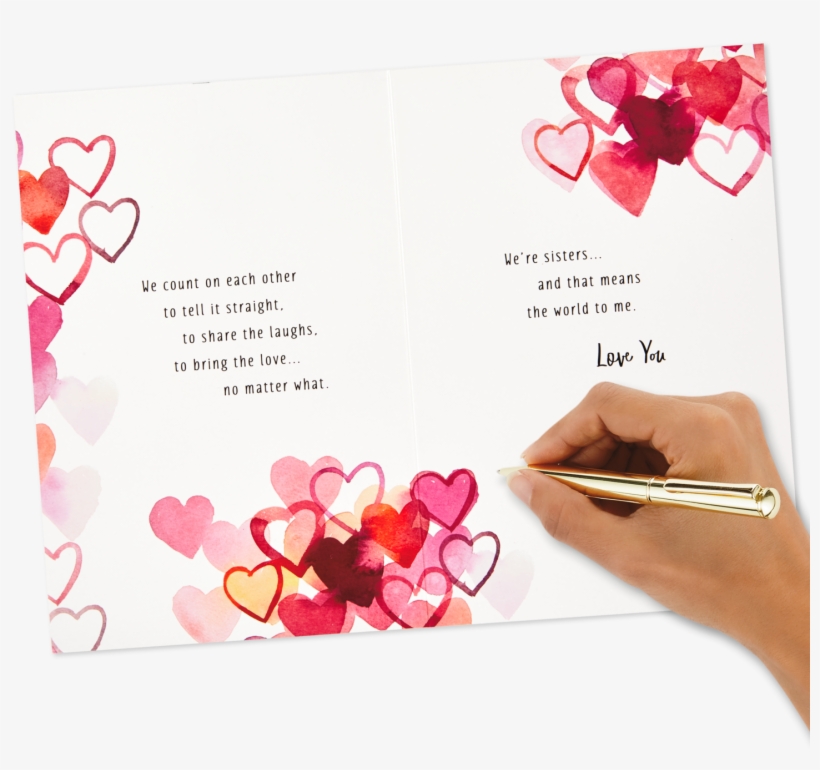 We count on each other
to tell it straight,
to share the laughs,
to bring the love...
no matter what.
We're sisters...
and that means
the world to me.
Love You